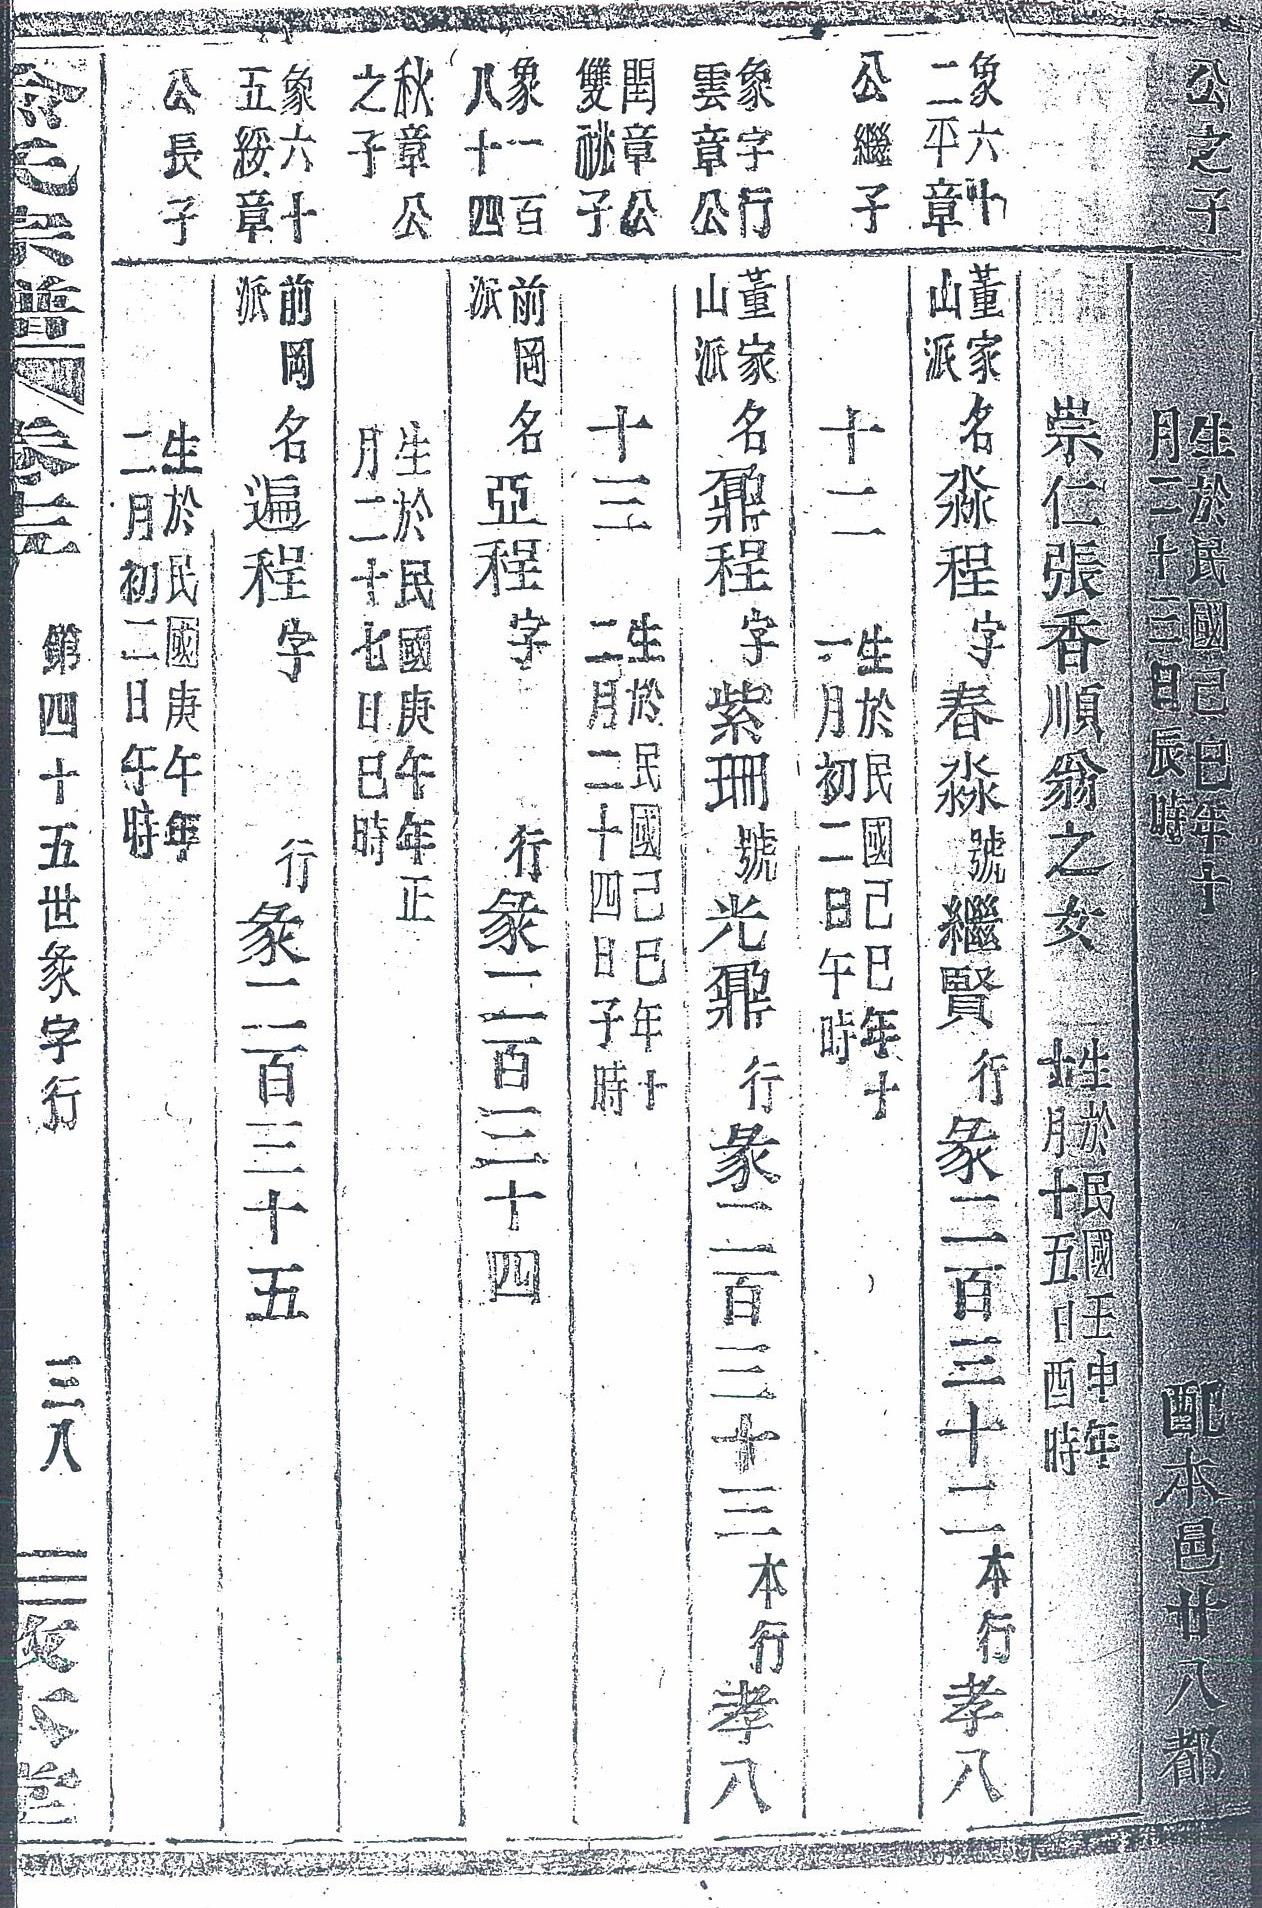 公之子
生於民國己巳年十
月二十三日辰時
配本邑廿八都
崇仁張香順翁之女
生於民國壬申年
月十五日酉時
象六十
二平章
公繼子
董家
山派
名淼程字春淼號繼賢行彖二百三十二本行孝八
十二
生於民國己巳年十
一月初二日午時
象字行
雲章公
閏章公
雙祧子
董家
山派
名鼐程字紫珊號光鼐行彖二百三十三本行孝八
十三
生於民國己巳年十
二月二十四日子時
象一百
八十四
秋章公
之子
前岡
派
名亞程字 行彖二百三十四
生於民國庚午年正
月二十七日巳時
象六十
五綏章
公長子
前岡
派
名遍程字 行彖二百三十五
生於民國庚午年
二月初二日午時
氏宗譜 卷三 第四十五世彖字行 三八